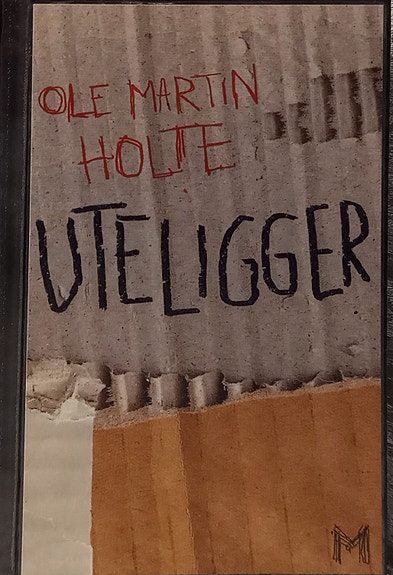 OLE MARTIN
HOLTE
UTELIGGER
M